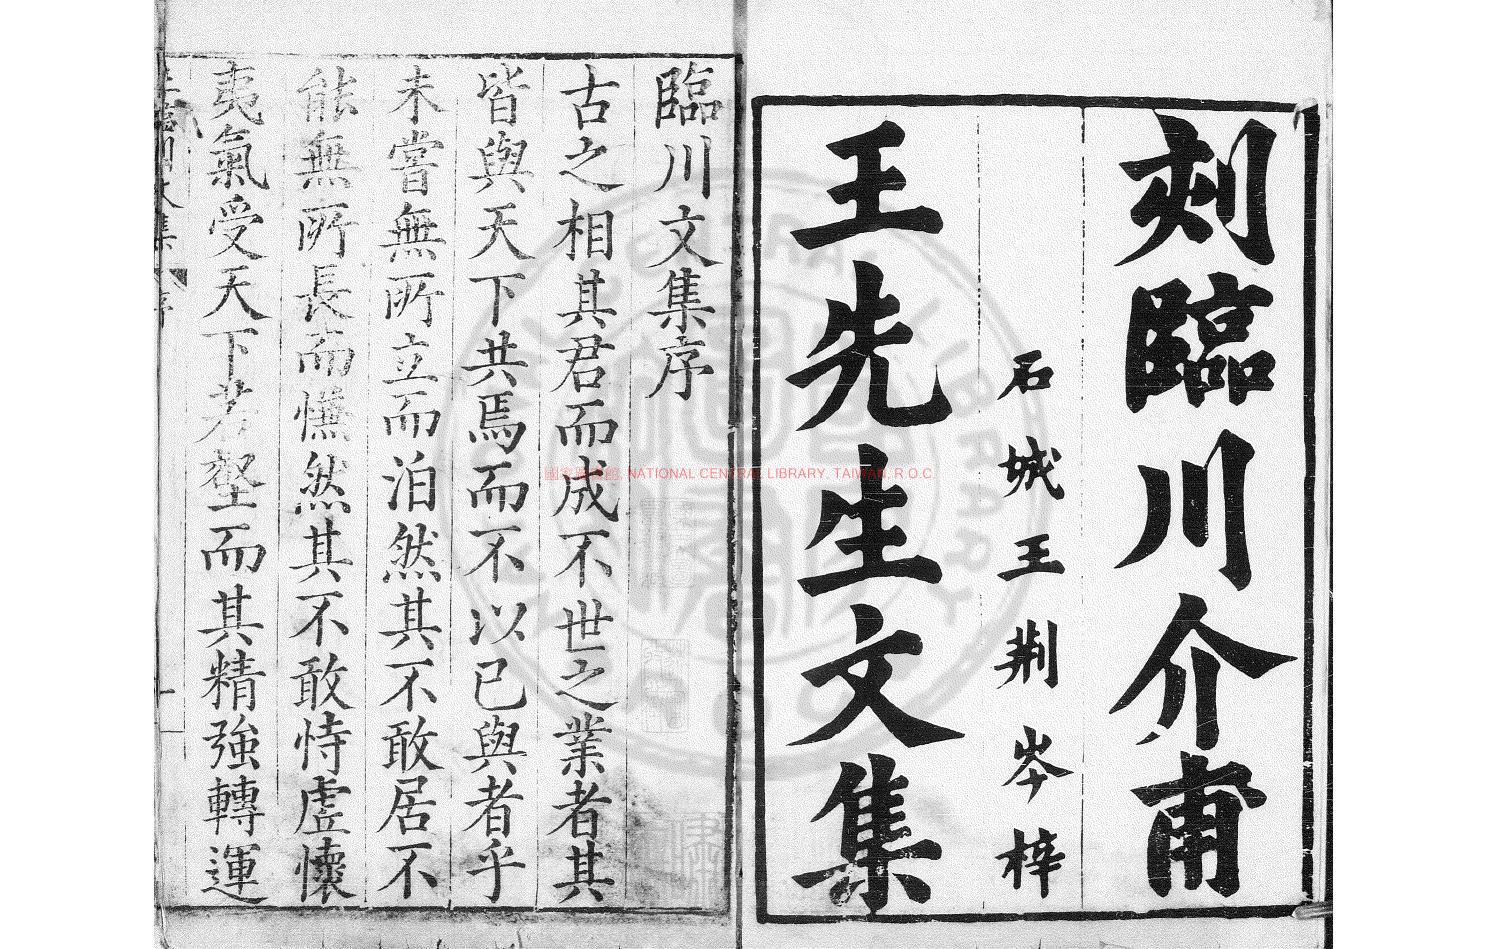 刻臨川介甫
石城王荆岑梓
王先生文集
臨川文集序
古之相其君而成不世之業者其
皆與天下共焉而不以已與者乎
未嘗無所立而泊然其不敢居不
能無所長而憮然其不敢恃虛懷
夷氣受天下若壑而其精強轉運
國家圖書館, NATIONAL CENTRAL LIBRARY, TAIWAN, R.O.C.